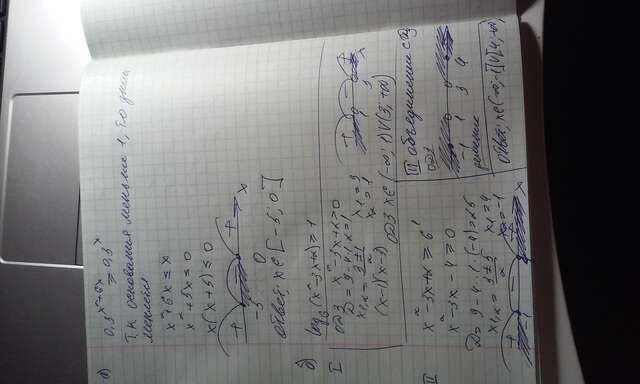 a) 0,3^(x²+6x) ≥ 0,3^x
Т.к основания меньше 1, то знак
меняется
x²+6x ≤ x
x²+5x ≤ 0
x(x+5) ≤ 0
+ - + x
-5 0
ответ: x∈[-5; 0]
б) log₆(x²-3x+2) ≥ 1
I ОДЗ x²-3x+2>0
D = 9-4·1·2=1
x₁,₂ = (3±1)/2 x₁ = 3
x₂ = 1
(x-1)(x-3)
+ - + x
1 3
ОДЗ x∈(-∞; 1)U(3; +∞)
II x²-3x+2 ≥ 6¹
x²-3x-4 ≥ 0
D = 9-4·1·(-4)=25
x₁,₂ = (3±5)/2 x₁ = 4
x₂ = -1
+ - + x
III объединение с ОДЗ
ОДЗ
-1 1 3 4
решение
ответ: x∈(-∞; -1]U[4; +∞)